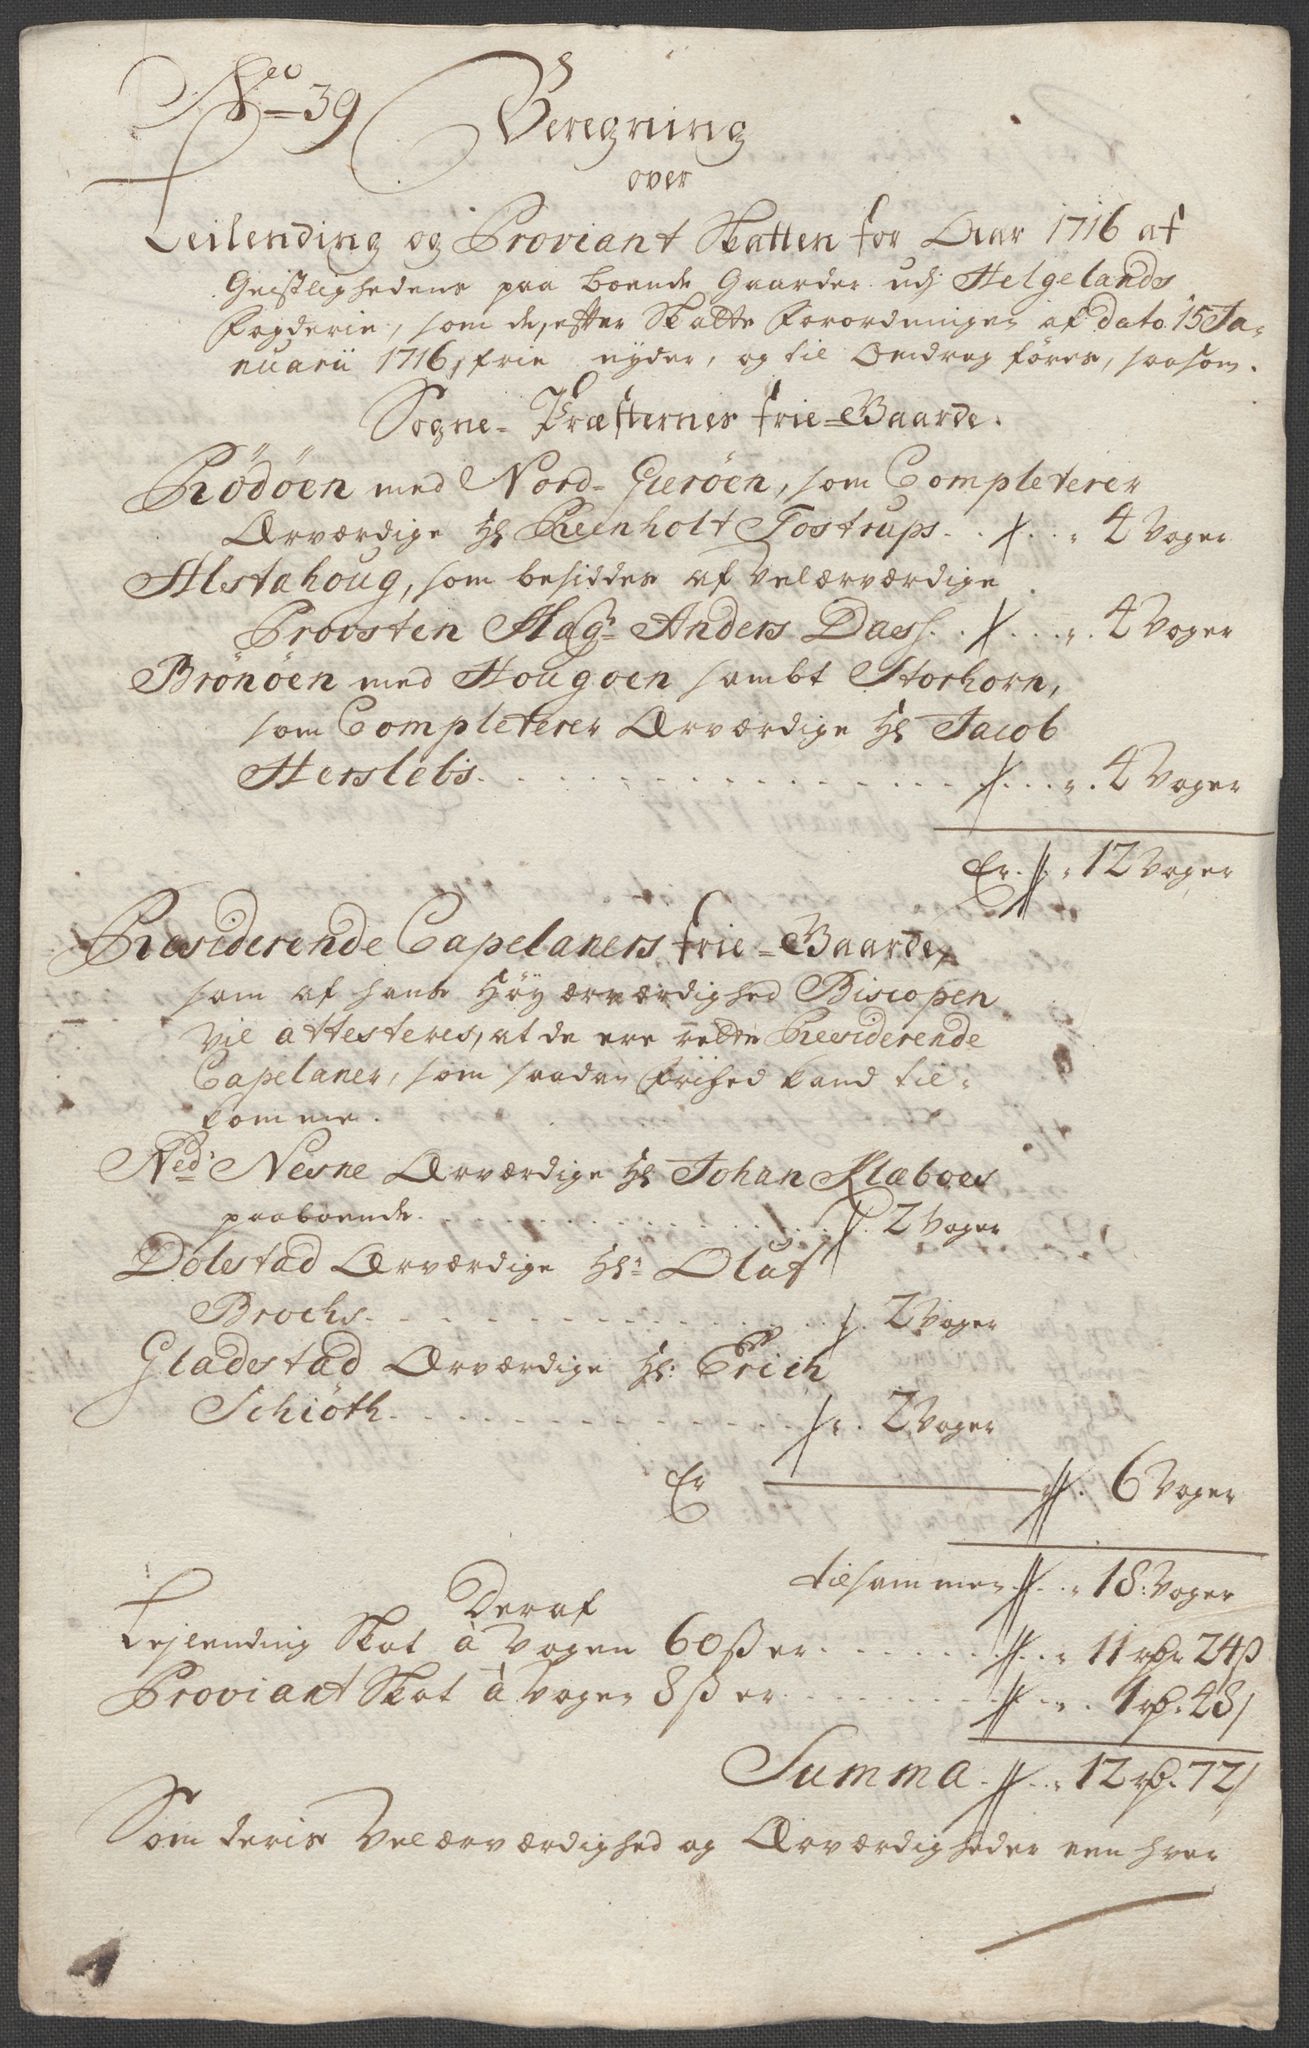 No 39 Beregning
over
Leilending og Proviant Skatten for Aar 1716 af
Geistlighedens paa boende Gaarder udj Helgelands
Fogderie, som de, efter Skatte Forordningen af dato 15 Ja-
nuarii 1716, frie nyder, og til Omdrag föres, saasom.
Sogne-Præsternes frie-Gaarde.
Rödöen med Nord-Gieröen, som Completerer
Ærværdige Hr Reinholt Tostrups . . 4 Voger
Alstahoug, som besiddes af Velærværdige
Provsten Magr Anders Dass . . 4 Voger
Brönöen med Hougoen sambt Storhorn,
som Completerer Ærværdige Hr Jacob
Herslebs . . 4 Voger
Er . . 12 Voger
Residerende Capelaners frie-Gaarde,
som af hans Höyærværdighed Biscopen
Vil attesteres, at de ere rette Residerende
Capelaner, som saadan Friihed kand til-
komme.
Ned: Nesne Ærværdige Hr Johan Klæboes
paaboende . . 2 Voger
Dolstad Ærværdige Hr: Oluf
Brochs . . 2 Voger
Gladstad Ærværdige Hr: Erich
Schiöth . . 2 Voger
Er 6 Voger
tilsammen . . 18: Voger
Deraf
Lejlending Skat à Vogen 60 ß er . . 11 rdr 24 ß
Proviant Skat à Voger 8 ß er . . 1 rd. 48 ß
Summa . . 12 rd. 72 ß
Som deris Velærværdighed og Ærværdigheder een hver